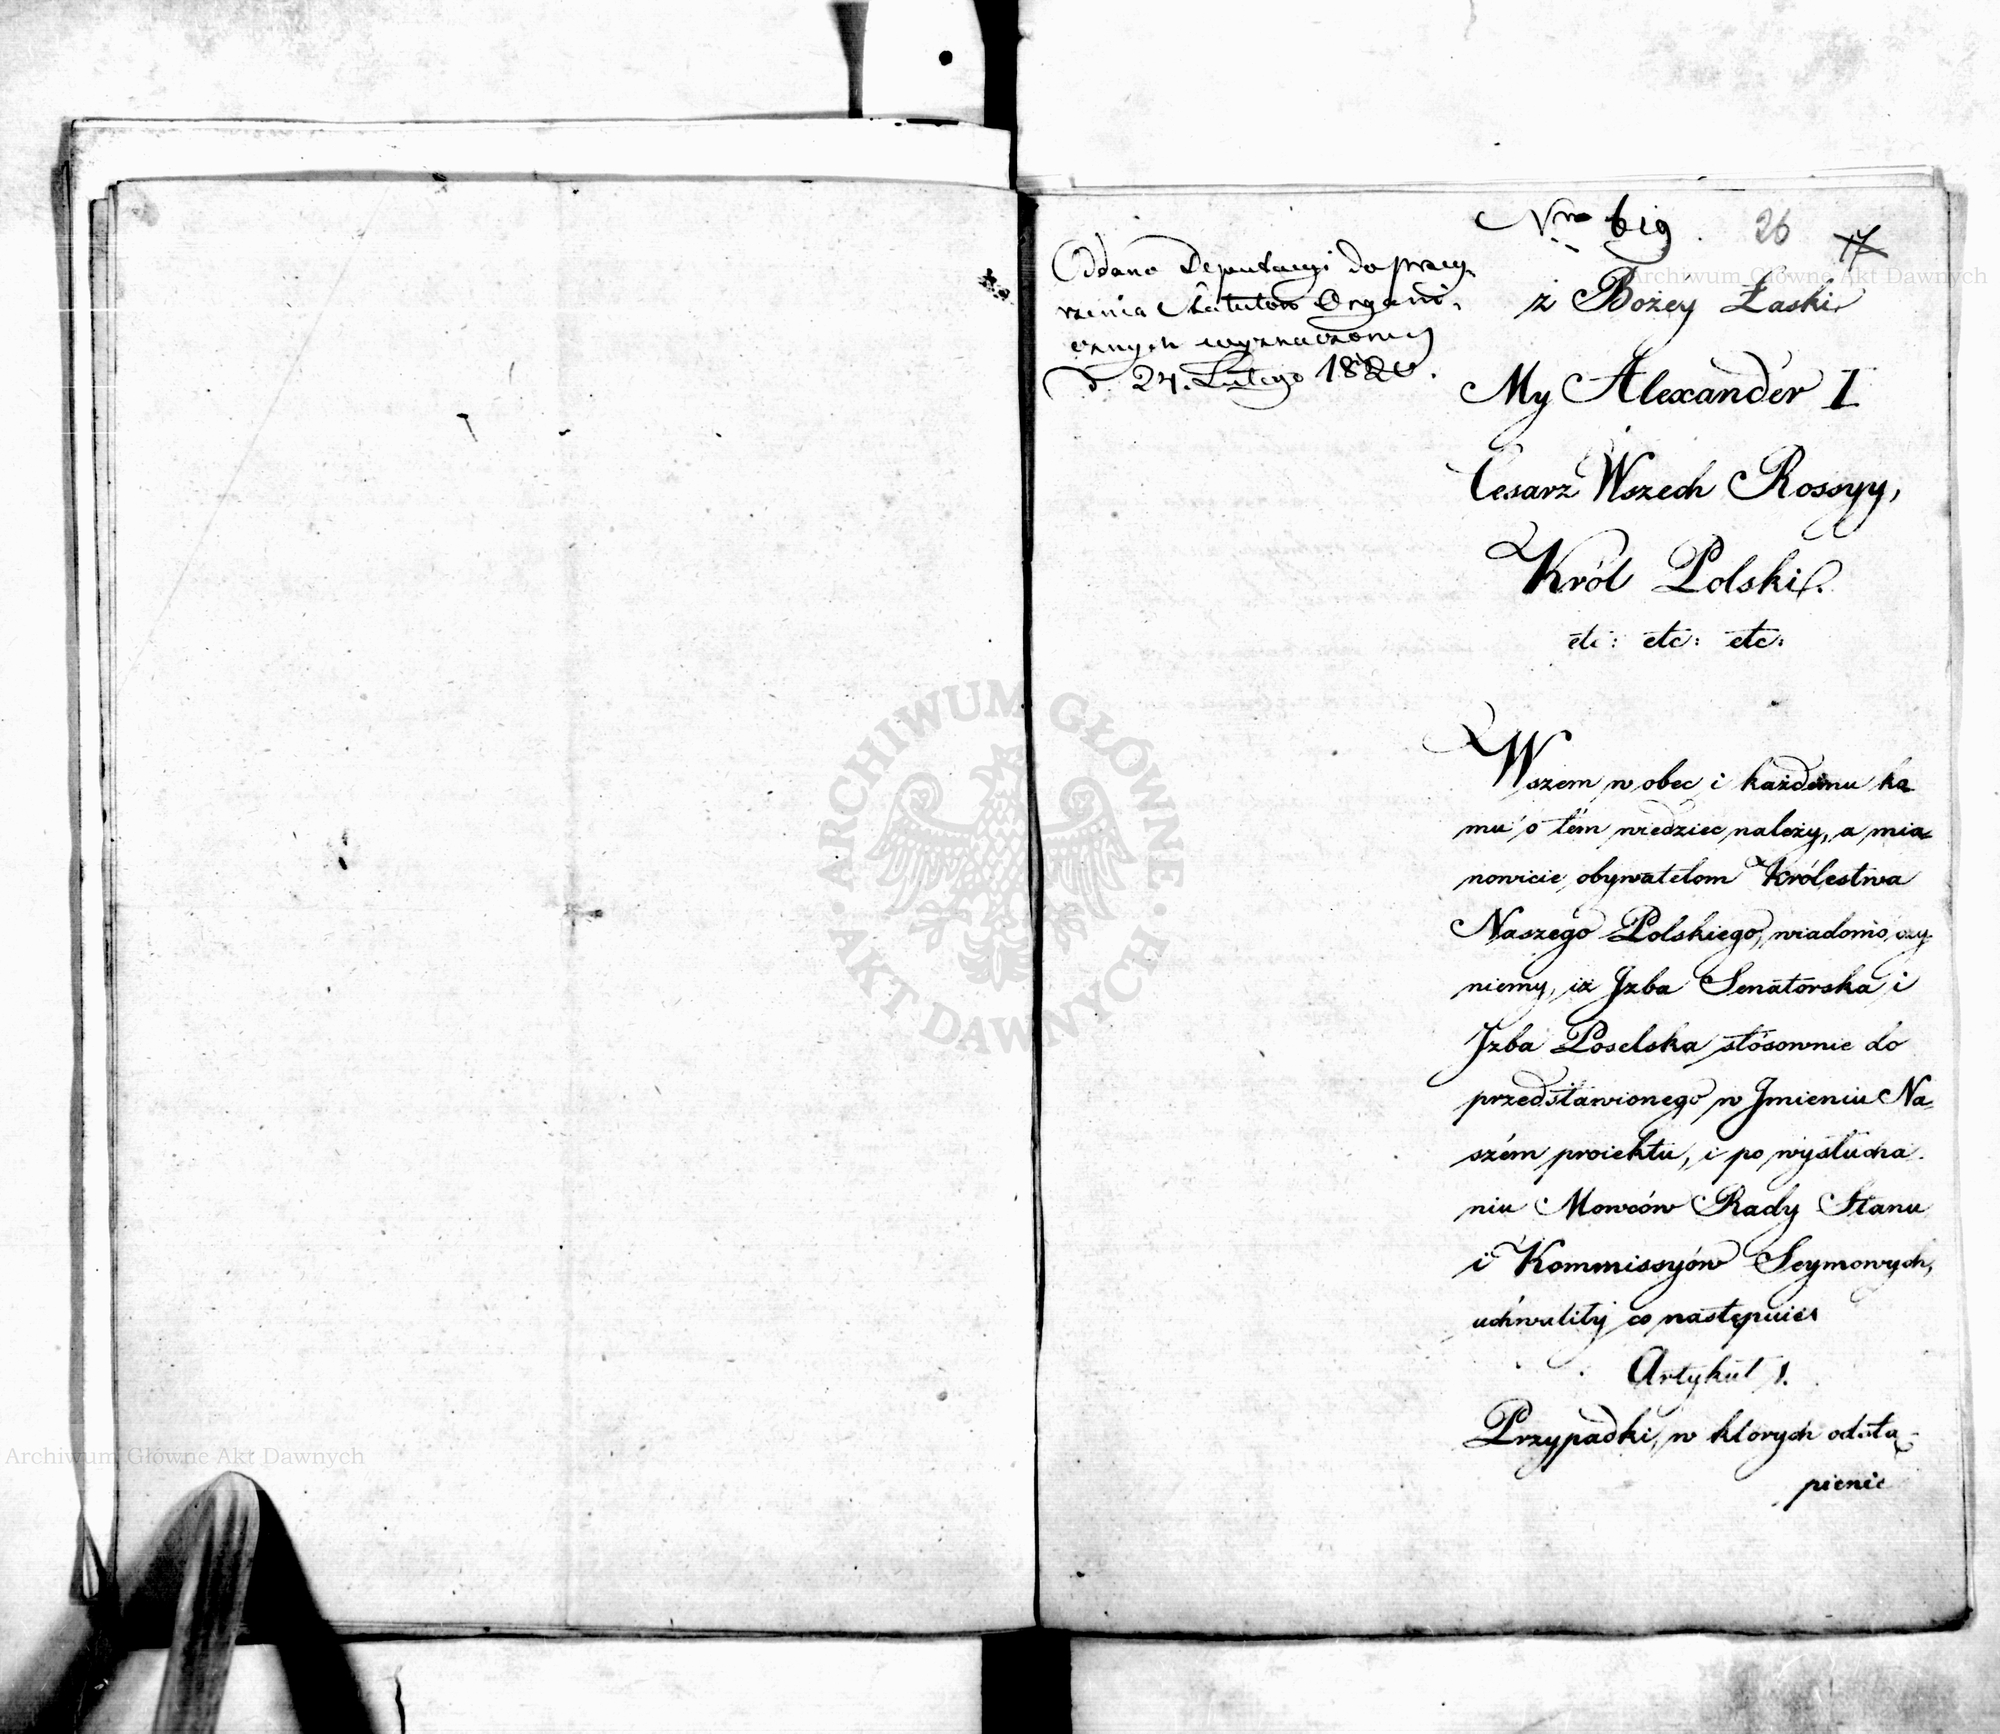 Nro 619.
26
17
Oddano Deputacyi do przey-
rzenia Statutow Organi-
cznych wyznaczoney
d. 24. Lutego 1820.
z Bożey Łaski
My Alexander I
Cesarz Wszech Rossyy,
Król Polski.
etc: etc: etc:
Wszem w obec i każdemu ko-
mu o tém wiedziec należy, a mia-
nowicie obywatelom Królestwa
Naszego Polskiego, wiadomo czy-
niemy, iż Jzba Senatorska i
Jzba Poselska stósownie do
przedstawionego w Jmieniu Na-
szém proiektu, i po wysłucha-
niu Mowców Rady Stanu
i Kommissyów Seymowych,
uchwaliły co następuie:
Artykuł 1.
Przypadki, w których odstą-
pienie
ARCHIWUM GŁÓWNE · AKT DAWNYCH ·
Archiwum Główne Akt Dawnych
Archiwum Główne Akt Dawnych